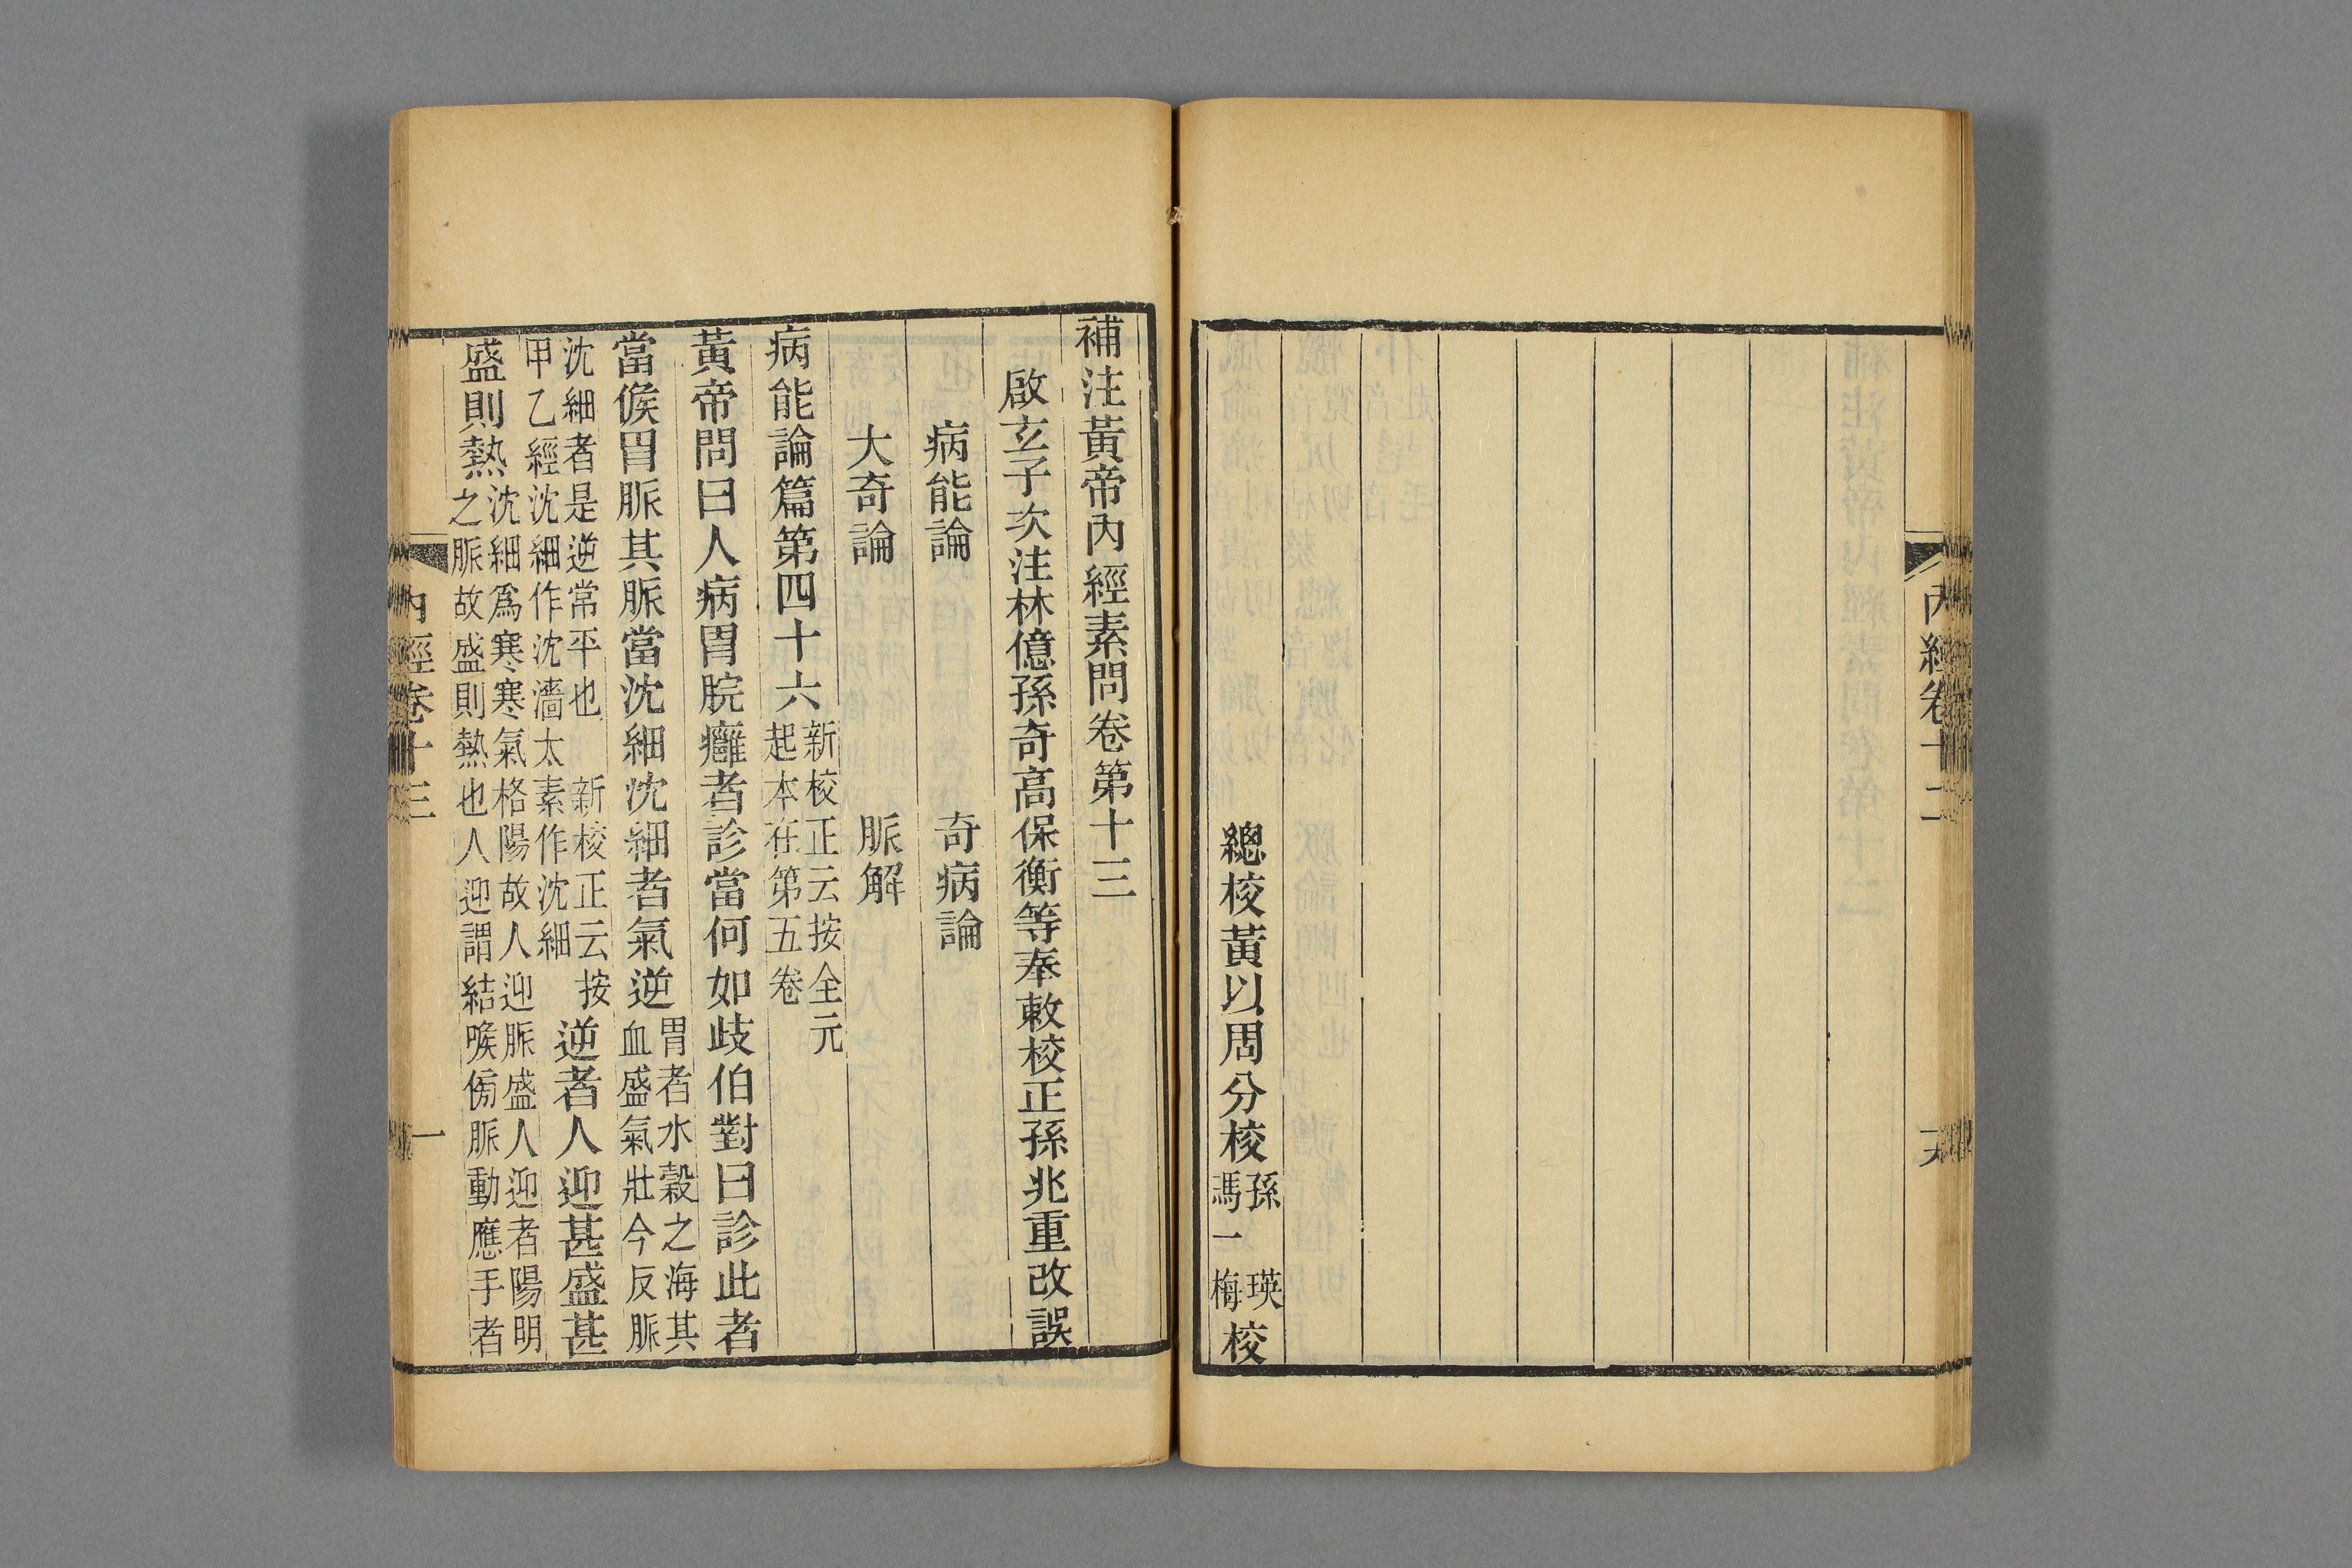 內經卷十二
總校黃以周分校孫瑛馮一梅校
補注黃帝內經素問卷第十三
啟玄子次注林億孫奇高保衡等奉敕校正孫兆重改誤
病能論 奇病論
大奇論 脈解
病能論篇第四十六新校正云按全元起本在第五卷
黃帝問曰人病胃脘癰者診當何如歧伯對曰診此者
當候胃脈其脈當沈細沈細者氣逆胃者水穀之海其血盛氣壯今反脈
沈細者是逆常平也 新校正云按甲乙經沈細作沈濇太素作沈細逆者人迎甚盛甚
盛則熱沈細爲寒寒氣格陽故人迎脈盛人迎者陽明之脈故盛則熱也人迎謂結喉傍脈動應手者
內經卷十三
一